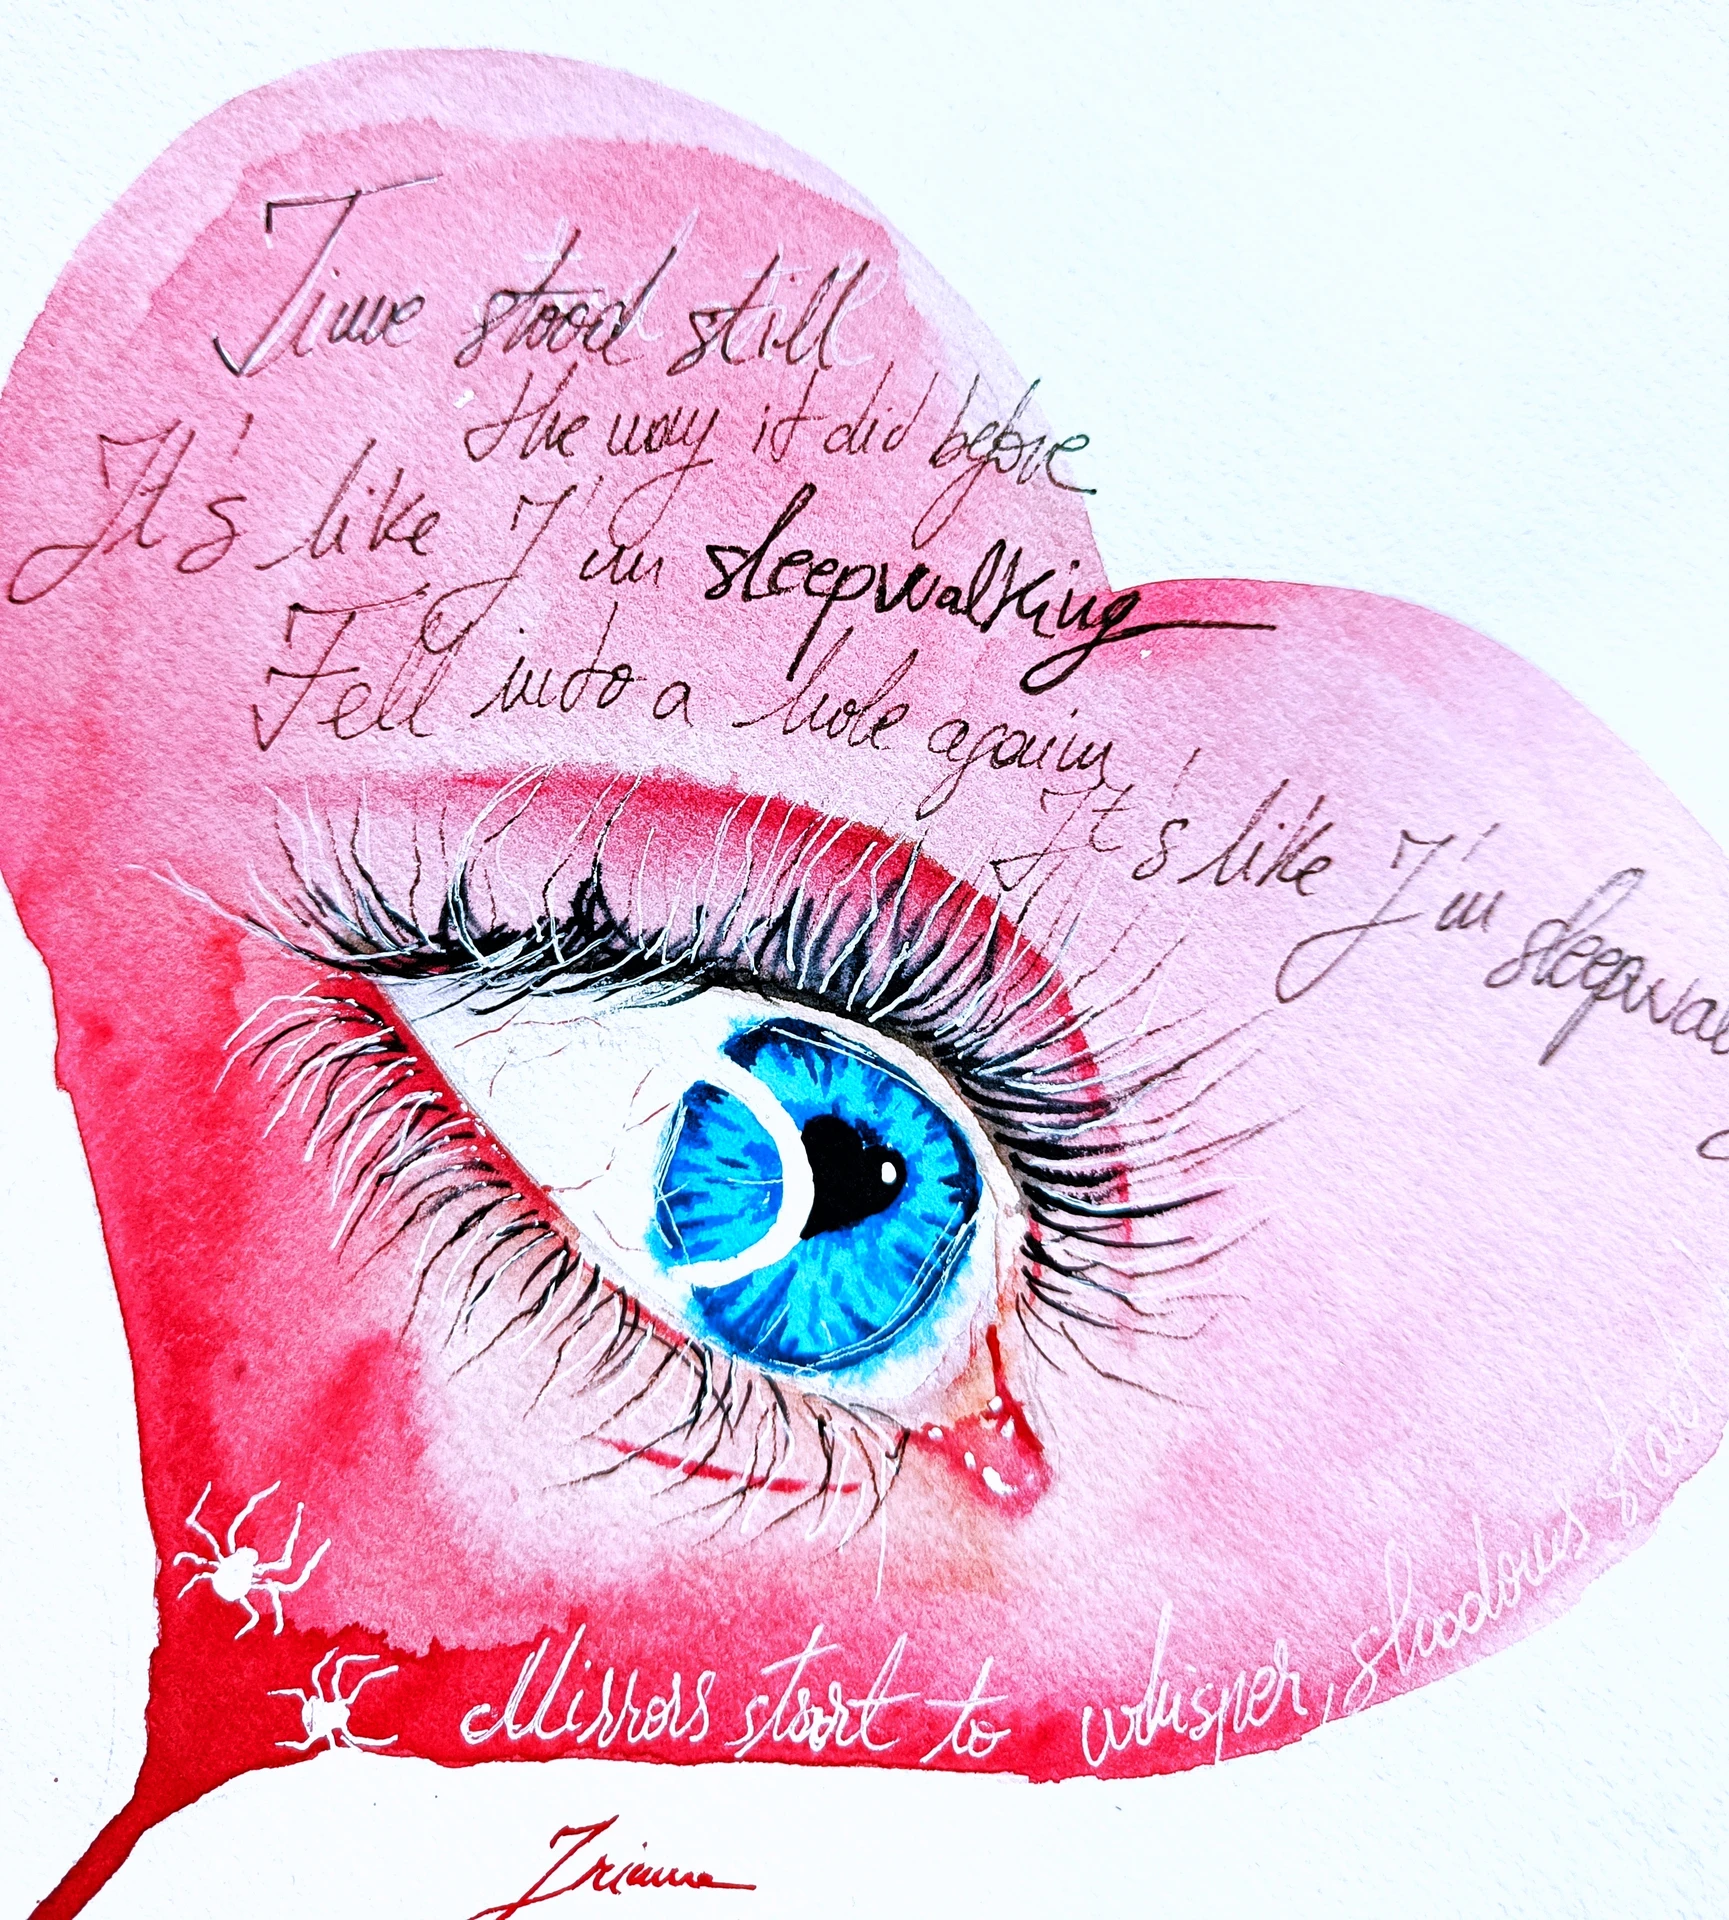 Time stood still
the way it did before
It's like I'm sleepwalking
Fell into a hole again
It's like I'm sleepwal
Mirrors start to whisper, shadows start